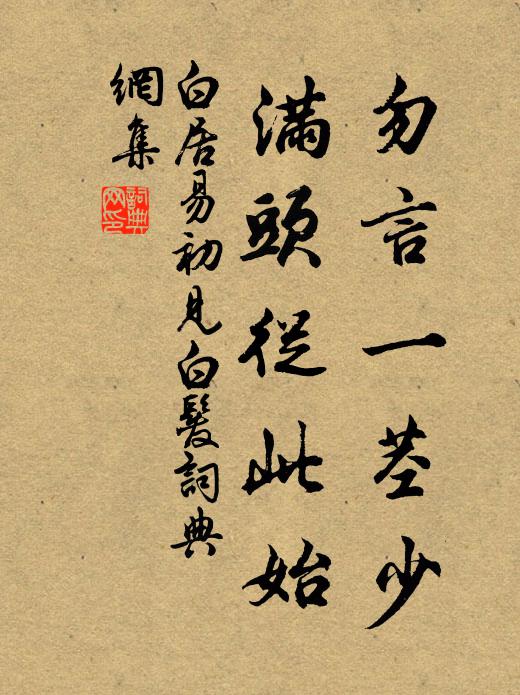 勿言一莖少
滿頭從此始
白居易初見白髮詞典
網集
詞典
网印